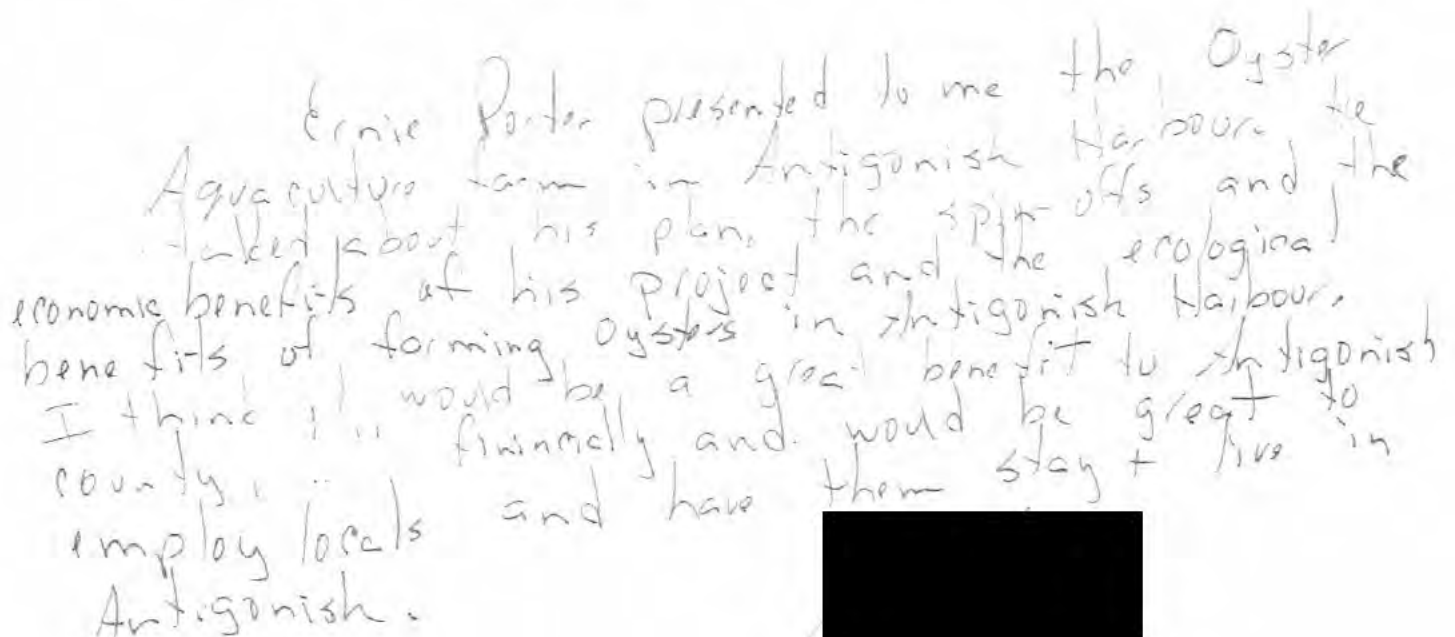 Ernie Porter presented to me the Oyster
Aquaculture farm in Antigonish Harbour. He
talked about his plan, the spin-offs and the
economic benefits of his project and the ecological
benefits of farming Oysters in Antigonish Harbour.
I think it would be a great benefit to Antigonish
county, financially and would be great to
employ locals and have them stay + live in
Antigonish.